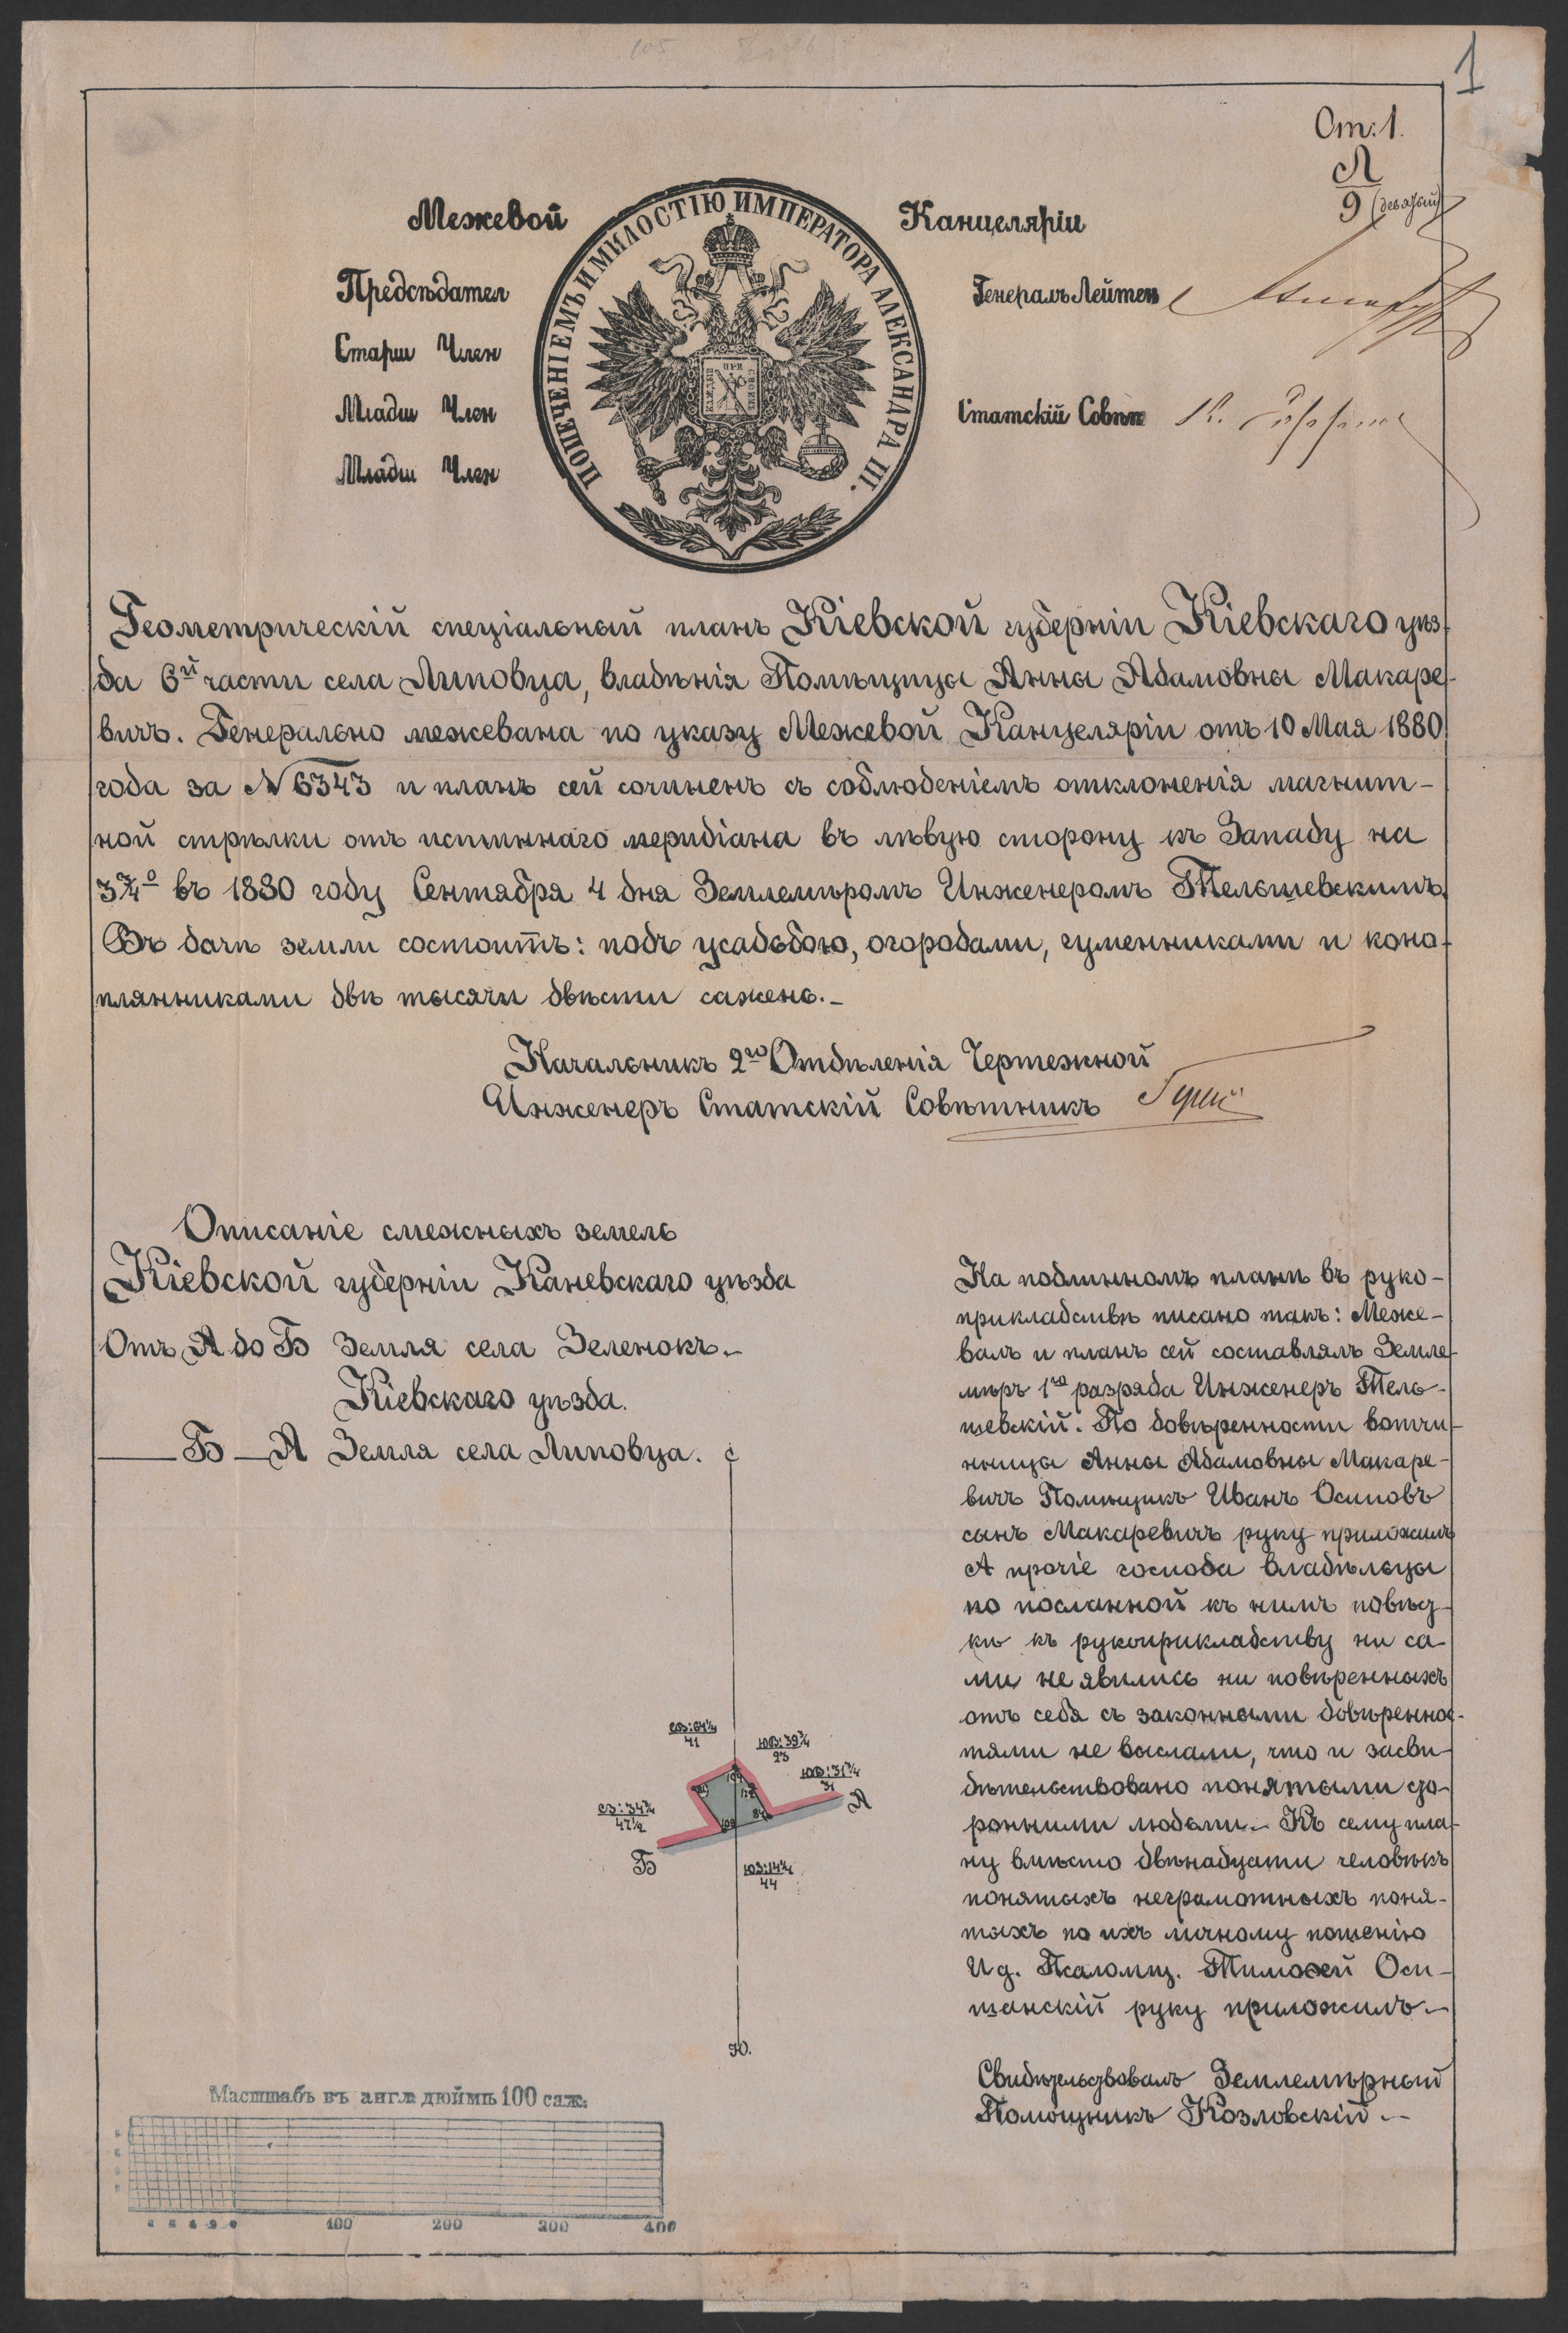 1
От: 1.
Л
9 (девятый)
Межевой Канцеляріи
ПОПЕЧЕНІЕМЪ И МИЛОСТІЮ ИМПЕРАТОРА АЛЕКСАНДРА III.
Предсѣдател Генералъ Лейтен
Старш Член
Младш Член Статскій Совѣт
Младш Член
Геометрическій спеціальный планъ Кіевской губерніи Кіевскаго уѣз-
да 6й части села Липовца, владѣнія Помѣщицы Анны Адамовны Макаре-
вичъ. Генерально межевана по указу Межевой Канцеляріи отъ 10 Мая 1880
года за № 6343 и планъ сей сочиненъ съ соблюденіемъ отклоненія магнит-
ной стрѣлки отъ истиннаго меридіана въ лѣвую сторону къ Западу на
3¾° въ 1880 году Сентября 4 дня Землемѣромъ Инженеромъ Тельшевскимъ.
Въ дачѣ земли состоитъ: подъ усадьбою, огородами, гуменниками и коно-
плянниками двѣ тысячи двѣсти сажень.-
Начальникъ 2го Отдѣленія Чертежной
Инженеръ Статскій Совѣтникъ
Описаніе смежныхъ земель
Кіевской губерніи Каневскаго уѣзда
Отъ А до Б Земля села Зеленокъ.-
Кіевскаго уѣзда.
— Б — А Земля села Липовца.
На подлинномъ планѣ въ руко-
прикладствѣ писано такъ: Меже-
валъ и планъ сей составлялъ Земле-
мѣръ 1го разряда Инженеръ Тель-
шевскій. По довѣренности вотчи-
нницы Анны Адамовны Макаре-
вичъ Помѣщикъ Иванъ Осиповъ
сынъ Макаревичъ руку приложилъ
А прочіе господа владѣльцы
по посланной къ нимъ повѣст-
кѣ къ рукоприкладству ни са-
ми не явились ни повѣренныхъ
отъ себя съ законными довѣреннос-
тями не выслали, что и засви-
дѣтельствовано понятыми сто-
ронними людьми.- Къ сему пла-
ну вмѣсто двѣнадцати человѣкъ
понятыхъ неграмотныхъ поня-
тыхъ по ихъ личному прошенію
И д. Псаломщ. Тимоѳей Оси-
шанскій руку приложилъ.-
Свидѣтельствовалъ Землемѣрный
Помощникъ Козловскій.-
С
41
ЮВ: 39¾
23
31
А
СЗ: 34¾
47½
Б
44
Ю.
Масштабъ въ англ. дюймѣ 100 саж.
100 200 300 400